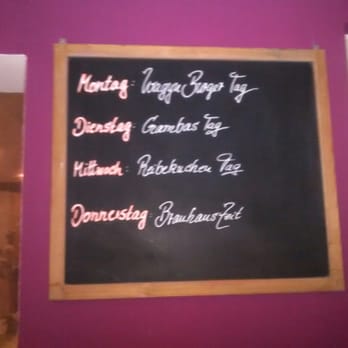 Montag: Wagyu Burger Tag
Dienstag: Gambas Tag
Mittwoch: Rebekuchen Tag
Donnerstag: BrauhausZeit